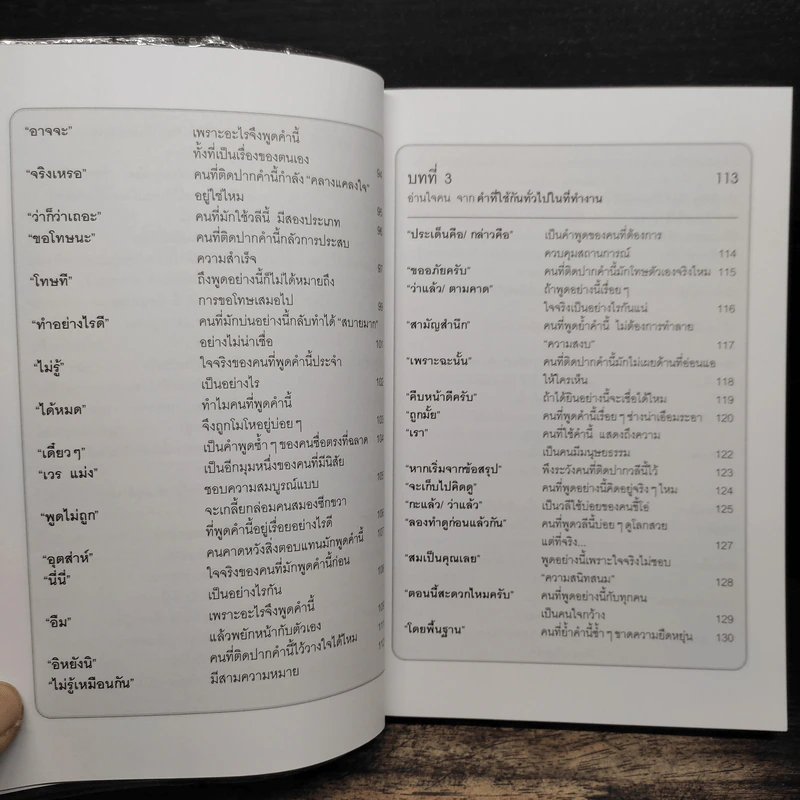 "อาจจะ" เพราะอะไรจึงพูดคำนี้
ทั้งที่เป็นเรื่องของตนเอง 94
"จริงเหรอ" คนที่ติดปากคำนี้กำลัง "คลางแคลงใจ"
อยู่ใช่ไหม 95
"ว่าก็ว่าเถอะ" คนที่มักใช้วลีนี้ มีสองประเภท 96
"ขอโทษนะ" คนที่ติดปากคำนี้กลัวการประสบ
ความสำเร็จ 97
"โทษที" ถึงพูดอย่างนี้ก็ไม่ได้หมายถึง
การขอโทษเสมอไป 99
"ทำอย่างไรดี" คนที่มักบ่นอย่างนี้กลับทำได้ "สบายมาก"
อย่างไม่น่าเชื่อ 101
"ไม่รู้" ใจจริงของคนที่พูดคำนี้ประจำ
เป็นอย่างไร 102
"ได้หมด" ทำไมคนที่พูดคำนี้
จึงถูกโมโหอยู่บ่อยๆ 103
"เดี๋ยวๆ" เป็นคำพูดซ้ำๆ ของคนซื่อตรงที่ฉลาด 104
"เวร แม่ง" เป็นอีกมุมหนึ่งของคนที่มีนิสัย
ชอบความสมบูรณ์แบบ 105
"พูดไม่ถูก" จะเกลี้ยกล่อมคนสมองซีกขวา
ที่พูดคำนี้อยู่เรื่อยอย่างไรดี 106
"อุตส่าห์" คนคาดหวังสิ่งตอบแทนมักพูดคำนี้ 107
"นี่นี่" ใจจริงของคนที่มักพูดคำนี้ก่อน
เป็นอย่างไรกัน 108
"อืม" เพราะอะไรจึงพูดคำนี้
แล้วพยักหน้ากับตัวเอง 109
"อิหยังนิ" คนที่ติดปากคำนี้ไว้วางใจได้ไหม 111
"ไม่รู้เหมือนกัน" มีสามความหมาย
บทที่ 3 113
อ่านใจคน จาก คำที่ใช้กันทั่วไปในที่ทำงาน
"ประเด็นคือ/ กล่าวคือ" เป็นคำพูดของคนที่ต้องการ
ควบคุมสถานการณ์ 114
"ขออภัยครับ" คนที่ติดปากคำนี้มักโทษตัวเองจริงไหม 115
"ว่าแล้ว/ ตามคาด" ถ้าพูดอย่างนี้เรื่อยๆ
ใจจริงเป็นอย่างไรกันแน่ 116
"สามัญสำนึก" คนที่พูดย้ำคำนี้ ไม่ต้องการทำลาย
"ความสงบ" 117
"เพราะฉะนั้น" คนที่ติดปากคำนี้มักไม่เผยด้านที่อ่อนแอ
ให้ใครเห็น 118
"คืบหน้าดีครับ" ถ้าได้ยินอย่างนี้จะเชื่อได้ไหม 119
"ถูกมั้ย" คนที่พูดคำนี้เรื่อยๆ ช่างน่าเอือมระอา 120
"เรา" คนที่ใช้คำนี้ แสดงถึงความ
เป็นคนมีมนุษยธรรม 122
"หากเริ่มจากข้อสรุป" พึงระวังคนที่ติดปากวลีนี้ไว้ 123
"จะเก็บไปคิดดู" คนที่พูดอย่างนี้คิดอยู่จริงๆ ไหม 124
"กะแล้ว/ ว่าแล้ว" เป็นวลีใช้บ่อยของคนขี้โอ่ 125
"ลองทำดูก่อนแล้วกัน" คนที่พูดวลีนี้บ่อยๆ ดูโลกสวย
แต่ที่จริง... 127
"สมเป็นคุณเลย" พูดอย่างนี้เพราะใจจริงไม่ชอบ
"ความสนิทสนม" 128
"ตอนนี้สะดวกไหมครับ" คนที่พูดอย่างนี้กับทุกคน
เป็นคนใจกว้าง 129
"โดยพื้นฐาน" คนที่ย้ำคำนี้ซ้ำๆ ขาดความยืดหยุ่น 130